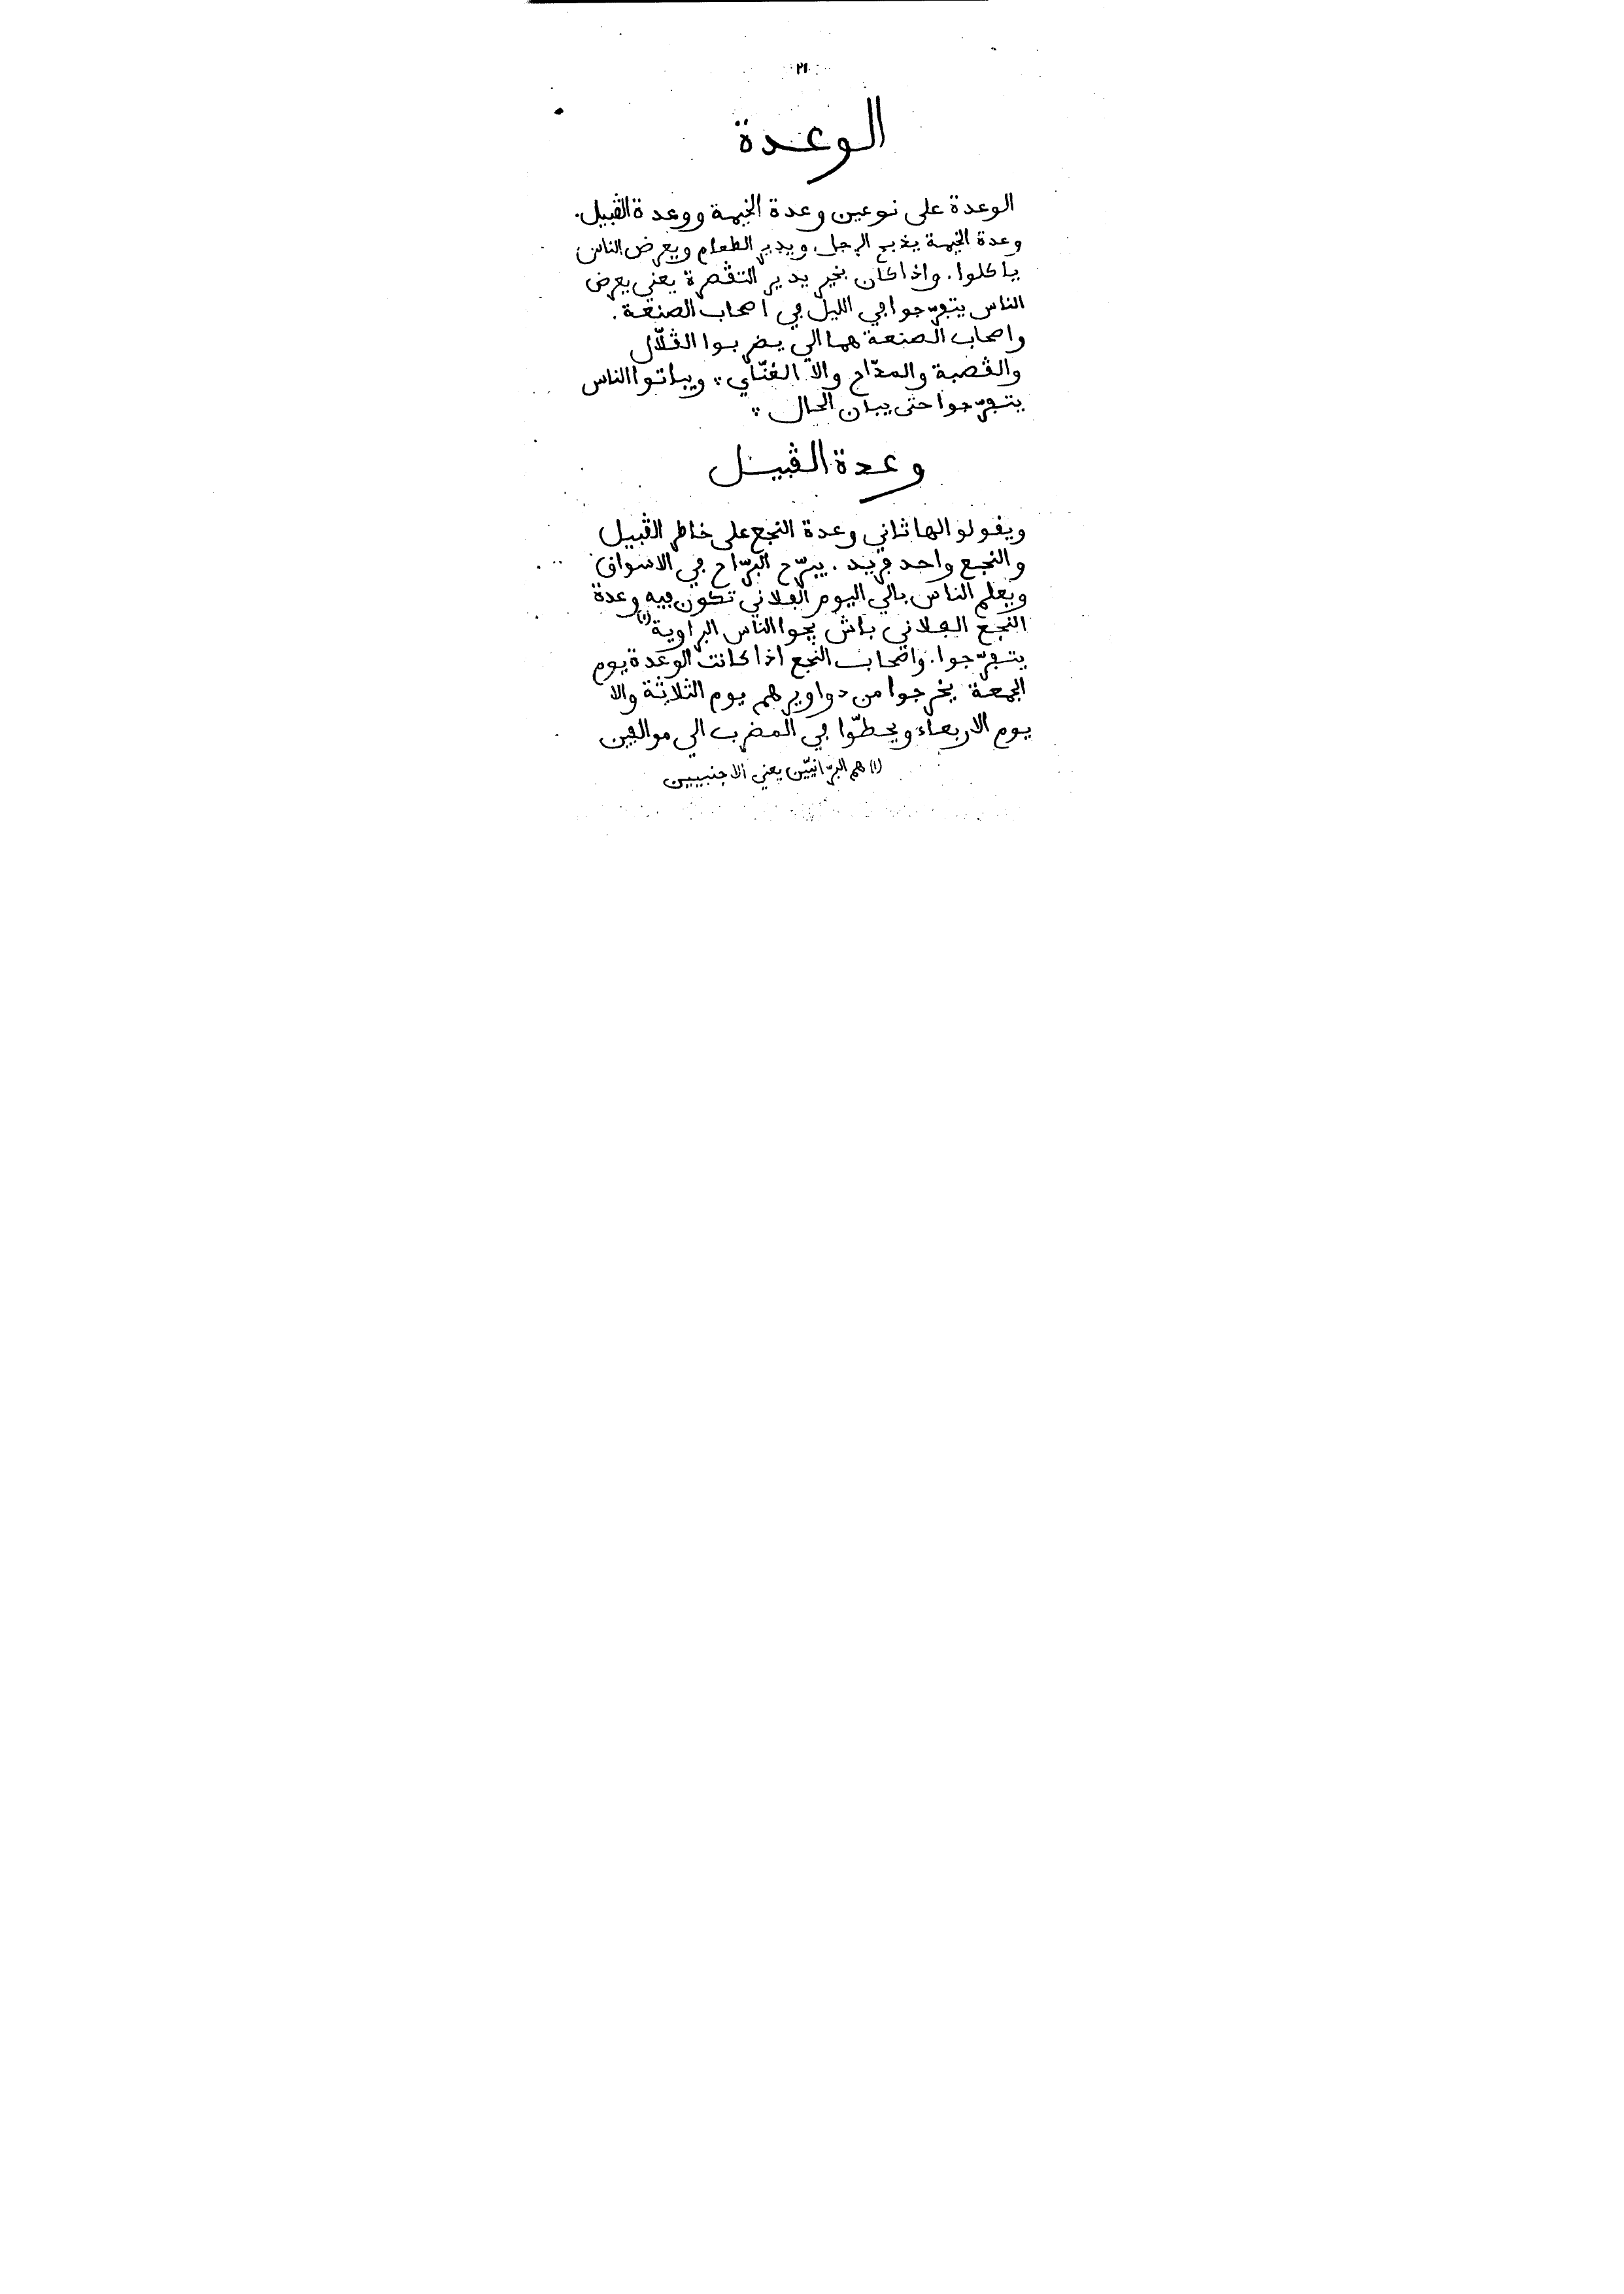 ٢١
الوعدة
الوعدة على نوعين وعدة الخيمة ووعدة الڤبيل.
وعدة الخيمة يذبح الرجل ويدير الطعام ويعرض الناس
ياكلوا. واذا كان بخير يدير التڤصرة يعني يعرض
الناس يتڢرّجوا ڢي الليل ڢي اصحاب الصنعة.
واصحاب الصنعة هما الي يضربوا الڤلّال
والڤصبة والمدّاح والا الغنّاي ؞ ويباتوا الناس
يتڢرّجوا حتى يبان الحال ؞
وعدة الڤبيل
ويفولوا لها ثاني وعدة النجع على خاطر الڤبيل
والنجع واحد ڢريد. يبرّح البرّاح ڢي الاسواق
ويعلم الناس بالي اليوم الڢلاني تكون ڢيه وعدة
النجع الڢلاني باش يجوا الناس البراوية (١)
يتڢرّجوا. واصحاب النجع اذا كانت الوعدة يوم
الجمعة يخرجوا من دواويرهم يوم الثلاثة والا
يوم الاربعاء ويحطّوا ڢي المضرب الي موالڢين
(١) هم البرّانيّين يعني الاجنبيين